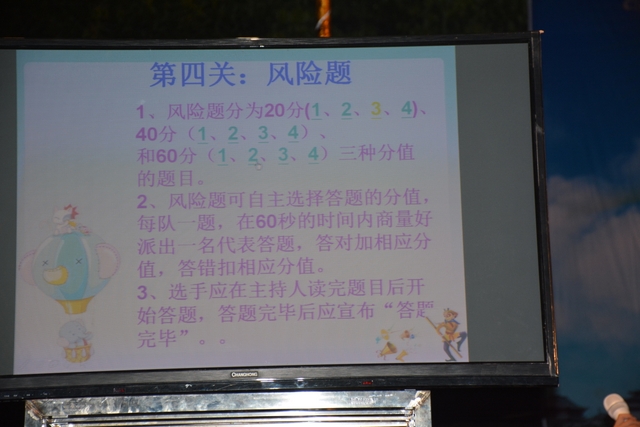 第四关：风险题
1、风险题分为20分(1、2、3、4)、
40分（1、2、3、4）、
和60分（1、2、3、4）三种分值
的题目。
2、风险题可自主选择答题的分值，
每队一题，在60秒的时间内商量好
派出一名代表答题，答对加相应分
值，答错扣相应分值。
3、选手应在主持人读完题目后开
始答题，答题完毕后应宣布“答题
完毕”。。
CHANGHONG